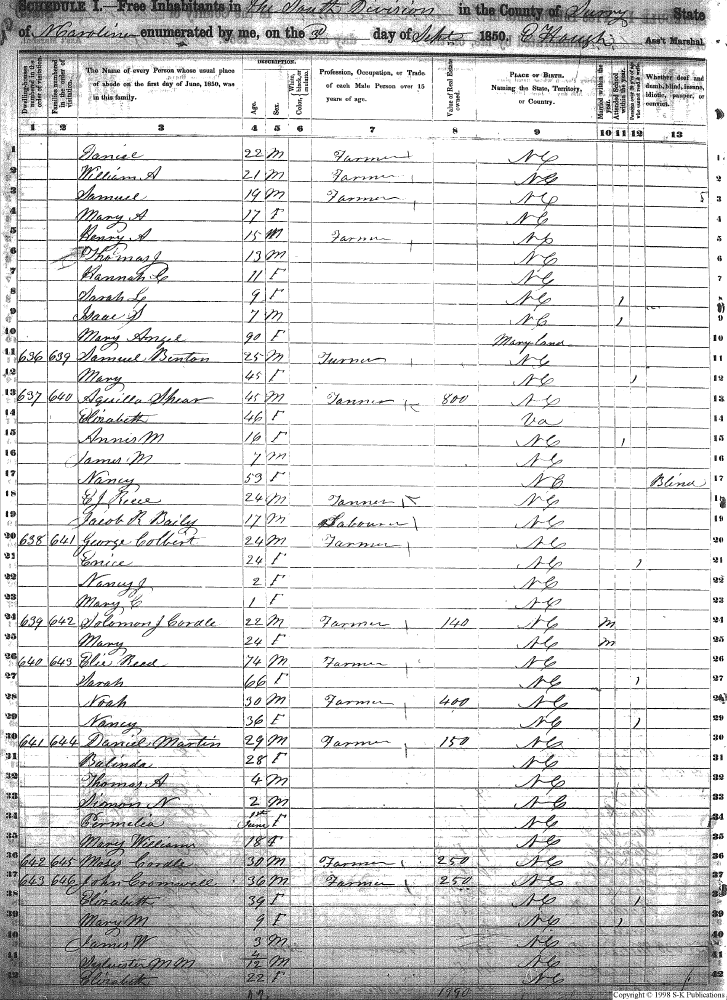 SCHEDULE I.—Free Inhabitants in the South Division in the County of Surry State
of N Carolina enumerated by me, on the 3 day of Sept 1850. Ass't Marshal.
DESCRIPTION.
Dwelling-houses numbered in the order of visitation. Families numbered in the order of visitation. The Name of every Person whose usual place of abode on the first day of June, 1850, was in this family. Age. Sex. White, black, or mulatto. Color, Profession, Occupation, or Trade of each Male Person over 15 years of age. Value of Real Estate owned. PLACE OF BIRTH. Naming the State, Territory, or Country. Married within the year. Attended School within the year. Whether deaf and dumb, blind, insane, idiotic, pauper, or convict.
1 2 3 4 5 6 7 8 9 10 11 12 13
1 22 M Farmer NC 1
2 William A 21 M Farmer NC 2
3 Samuel 19 M Farmer NC 3
4 Mary A 17 F NC 4
5 Henry A 15 M Farmer NC 5
6 Thomas J 13 M NC 6
7 Hannah C 11 F NC 7
8 Sarah L 9 F NC 1 8
9 Isaac S 7 M NC 1 9
10 Mary Angel 90 F Maryland 10
11 636 639 Samuel Benton 25 M NC 11
12 Mary 45 F NC 1 12
13 637 640 Aquilla Shear 45 M Tanner 800 NC 13
14 Elizabeth 46 F Va 14
15 Annis M 16 F NC 1 15
16 James M 7 M NC 16
17 Nancy 53 F NC Blind 17
18 E J Reece 24 M Tanner NC 18
19 Jacob R Baily 17 M Labourer NC 19
20 638 641 George Colbert 24 M Farmer NC 20
21 Enice 24 F NC 1 21
22 Nancy J 2 F NC 22
23 Mary C 1 F NC 23
24 639 642 Solomon J Cordle 22 M Farmer 140 NC M 24
25 Mary 24 F NC M 25
26 640 643 Elie Reed 74 M Farmer NC 26
27 Sarah 66 F NC 1 27
28 Noah 30 M Farmer 400 NC 28
29 Nancy 36 F NC 1 29
30 641 644 Daniel Martin 29 M Farmer 150 NC 30
31 Balinda 28 F NC 31
32 Thomas A 4 M NC 32
33 Simon N 2 M NC 33
34 Permelia 1st June F NC 34
35 Mary Williams 18 F NC 35
36 642 645 Moses Cordle 30 M Farmer 250 NC 36
37 643 646 John Cromwell 36 M Farmer 250 NC 37
38 Elizabeth 39 F NC 1 38
39 Mary M 9 F NC 1 39
40 James W 3 M NC 40
41 Sylvester M M 4/12 M NC 41
42 Elizabeth 22 F NC 42
1990
Copyright © 1998 S-K Publications